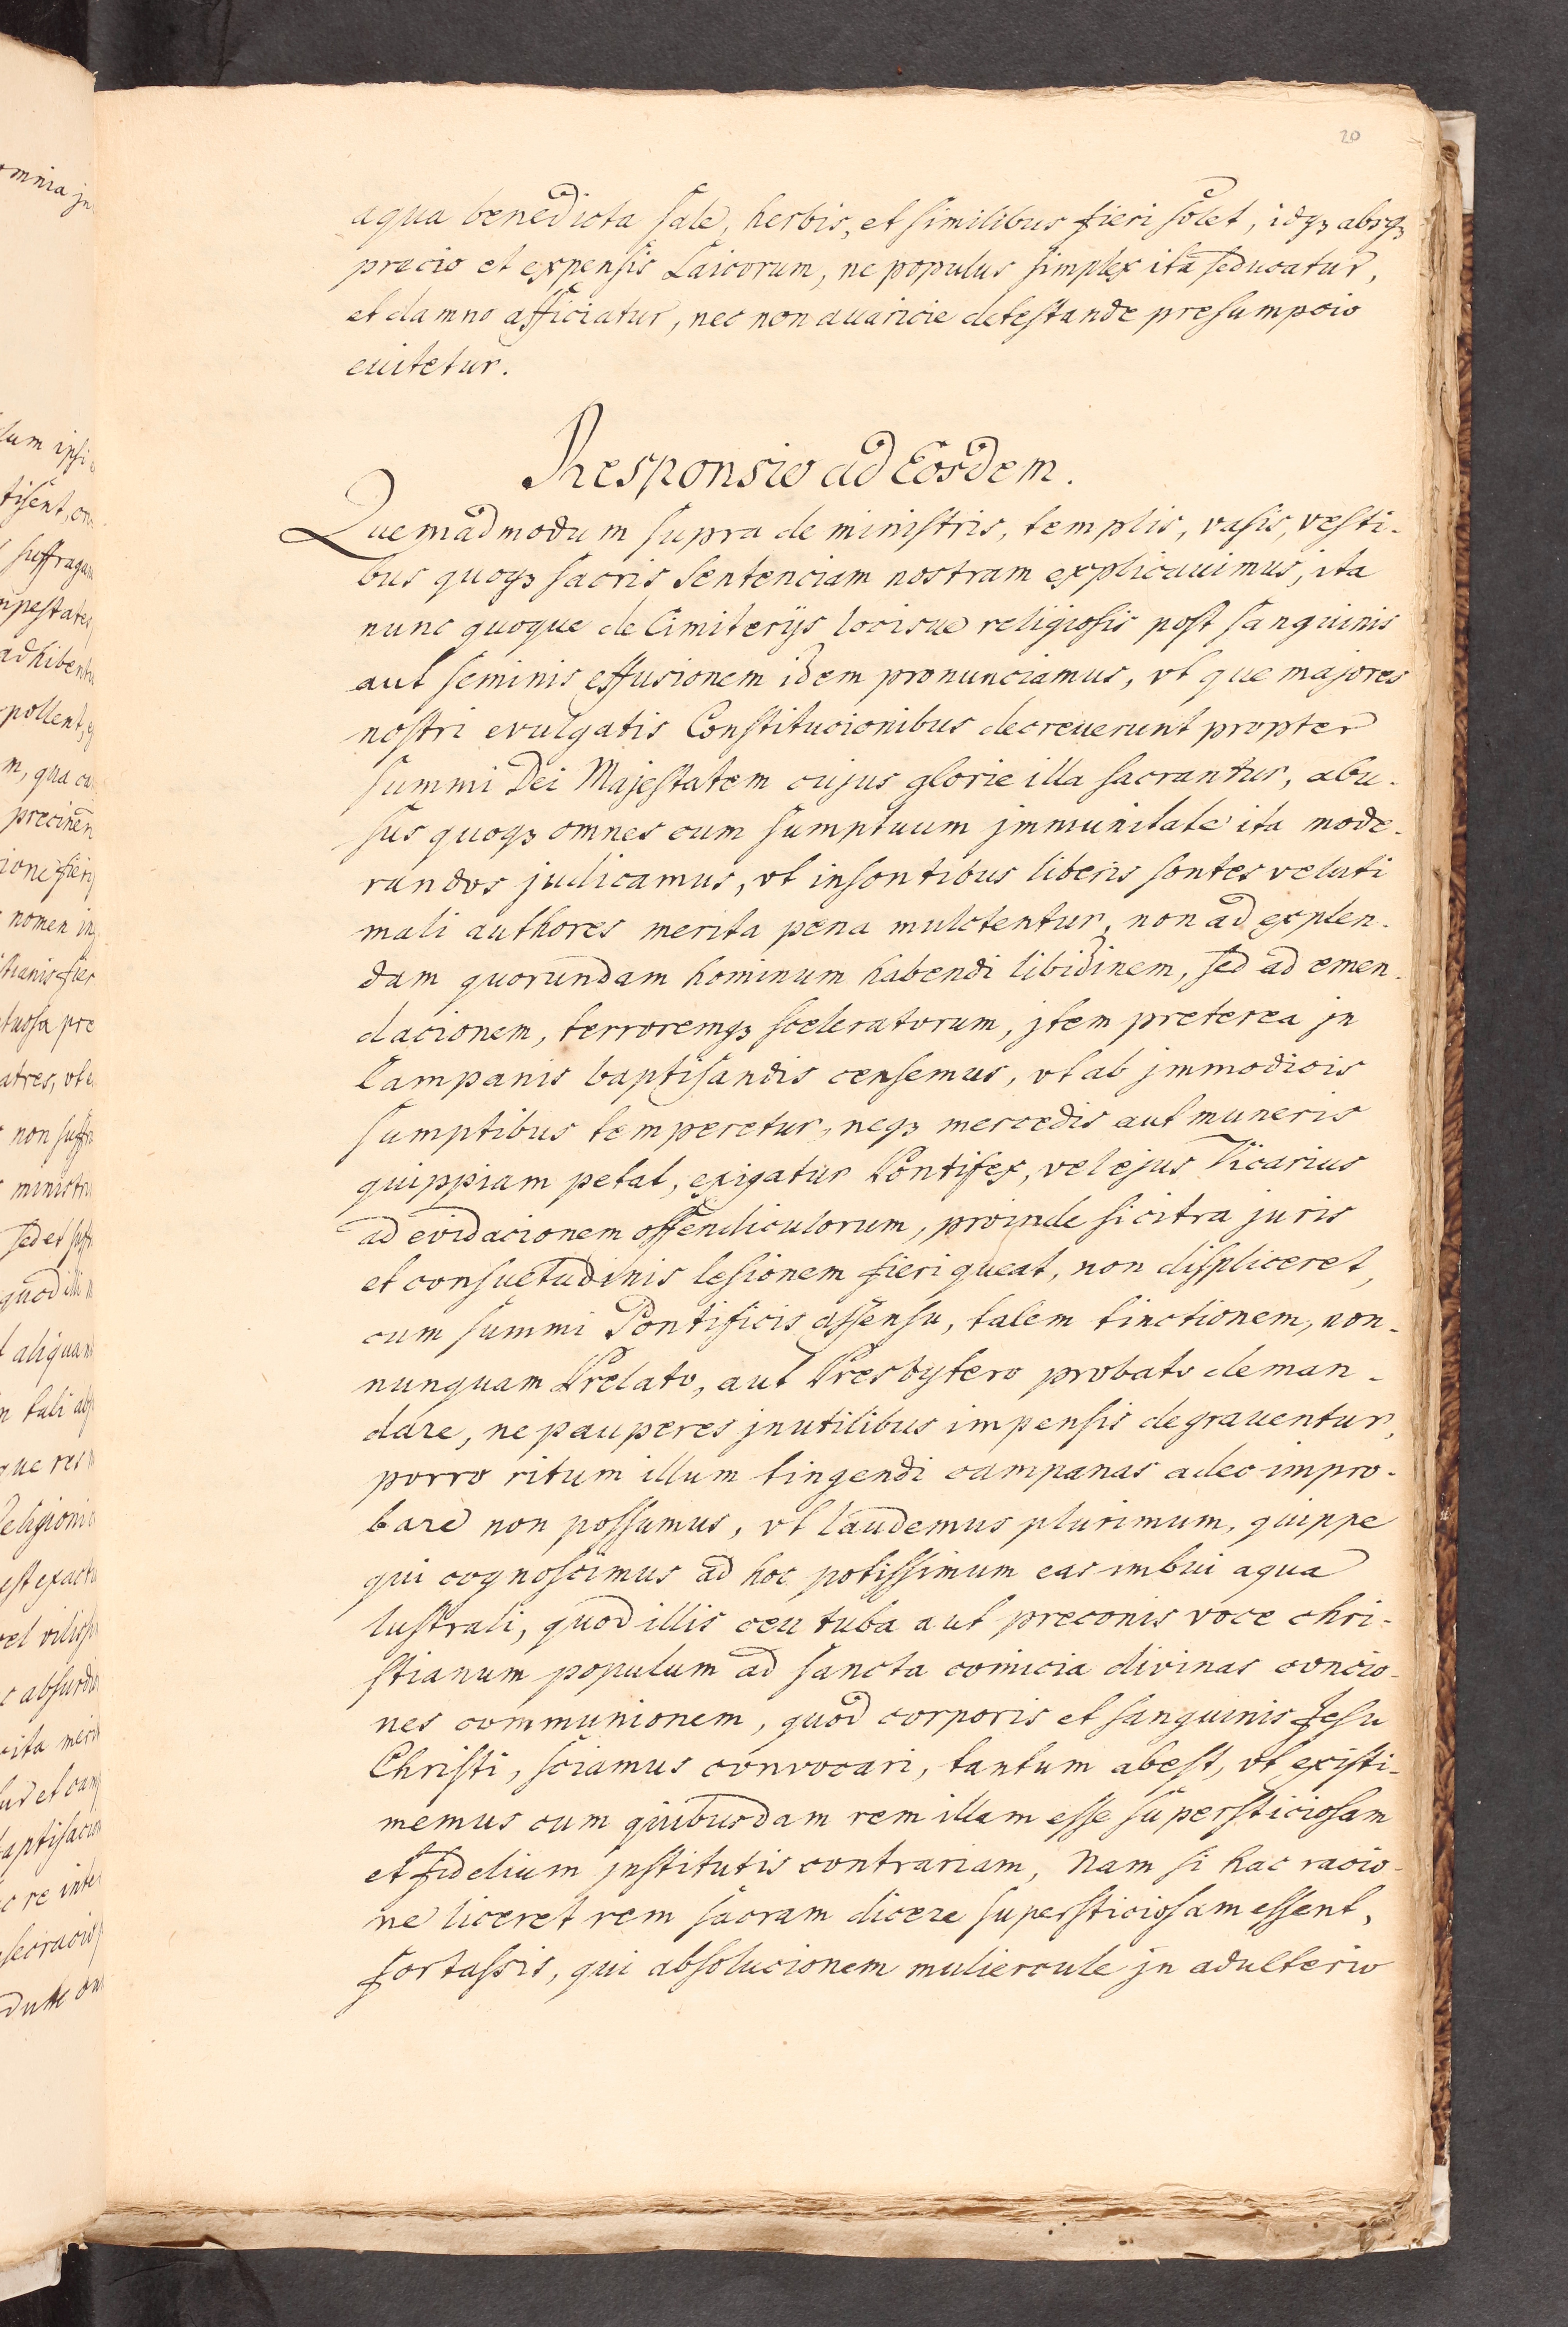 20
aqua benedicta sale, herbis, et similibus fieri solet, idqꝫ absqꝫ
precio et expensis Laicorum, ne populus simplex ita seducatur,
et damno afficiatur, nec non auaricie detestande presumpcio
euitetur.
Responsio ad Eosdem.
Quemadmodum supra de ministris, templis, vasis, vesti-
bus quoqꝫ sacris sentenciam nostram explicauimus, ita
nunc quoque de Cimiterijs locisue religiosis post sanguinis
aut seminis effusionem idem pronunciamus, vt que majores
nostri evulgatis Constitucionibus decreuerunt propter
summi Dei Majestatem cujus glorie illa sacrantur, abu-
sus quoqꝫ omnes cum sumptuum jmmunitate ita mode-
randos judicamus, vt insontibus liberis sontes veluti
mali authores merita pena mulctentur, non ad explen-
dam quorundam hominum habendi libidinem, sed ad emen-
dacionem, terroremqꝫ sceleratorum, jtem preterea jn
Campanis baptisandis censemus, vt ab jmmodicis
sumptibus temperetur, neqꝫ mercedis aut muneris
quippiam petat, exigatur Pontifex, vel ejus Vicarius
ad evidacionem offendiculorum, proinde si citra juris
et consuetudinis lesionem fieri queat, non displiceret,
cum summi Pontificis assensu, talem tinctionem, non-
nunquam Prelato, aut Presbytero probato deman-
dare, ne pauperes jnutilibus impensis degrauentur,
porro ritum illum tingendi campanas adeo impro-
bare non possumus, vt laudemus plurimum, quippe
qui cognoscimus ad hoc potissimum eas imbui aqua
lustrali, quod illis ceu tuba aut preconis voce chri-
stianum populum ad sancta comicia divinas concio-
nes communionem, quod corporis et sanguinis Jesu
Christi, sciamus convocari, tantum abest, vt existi-
memus cum quibusdam rem illam esse supersticiosam
et fidelium jnstitutis contrariam, Nam si hac racio-
ne liceret rem sacram dicere supersticiosam essent,
fortassis, qui absolucionem muliercule jn adulterio